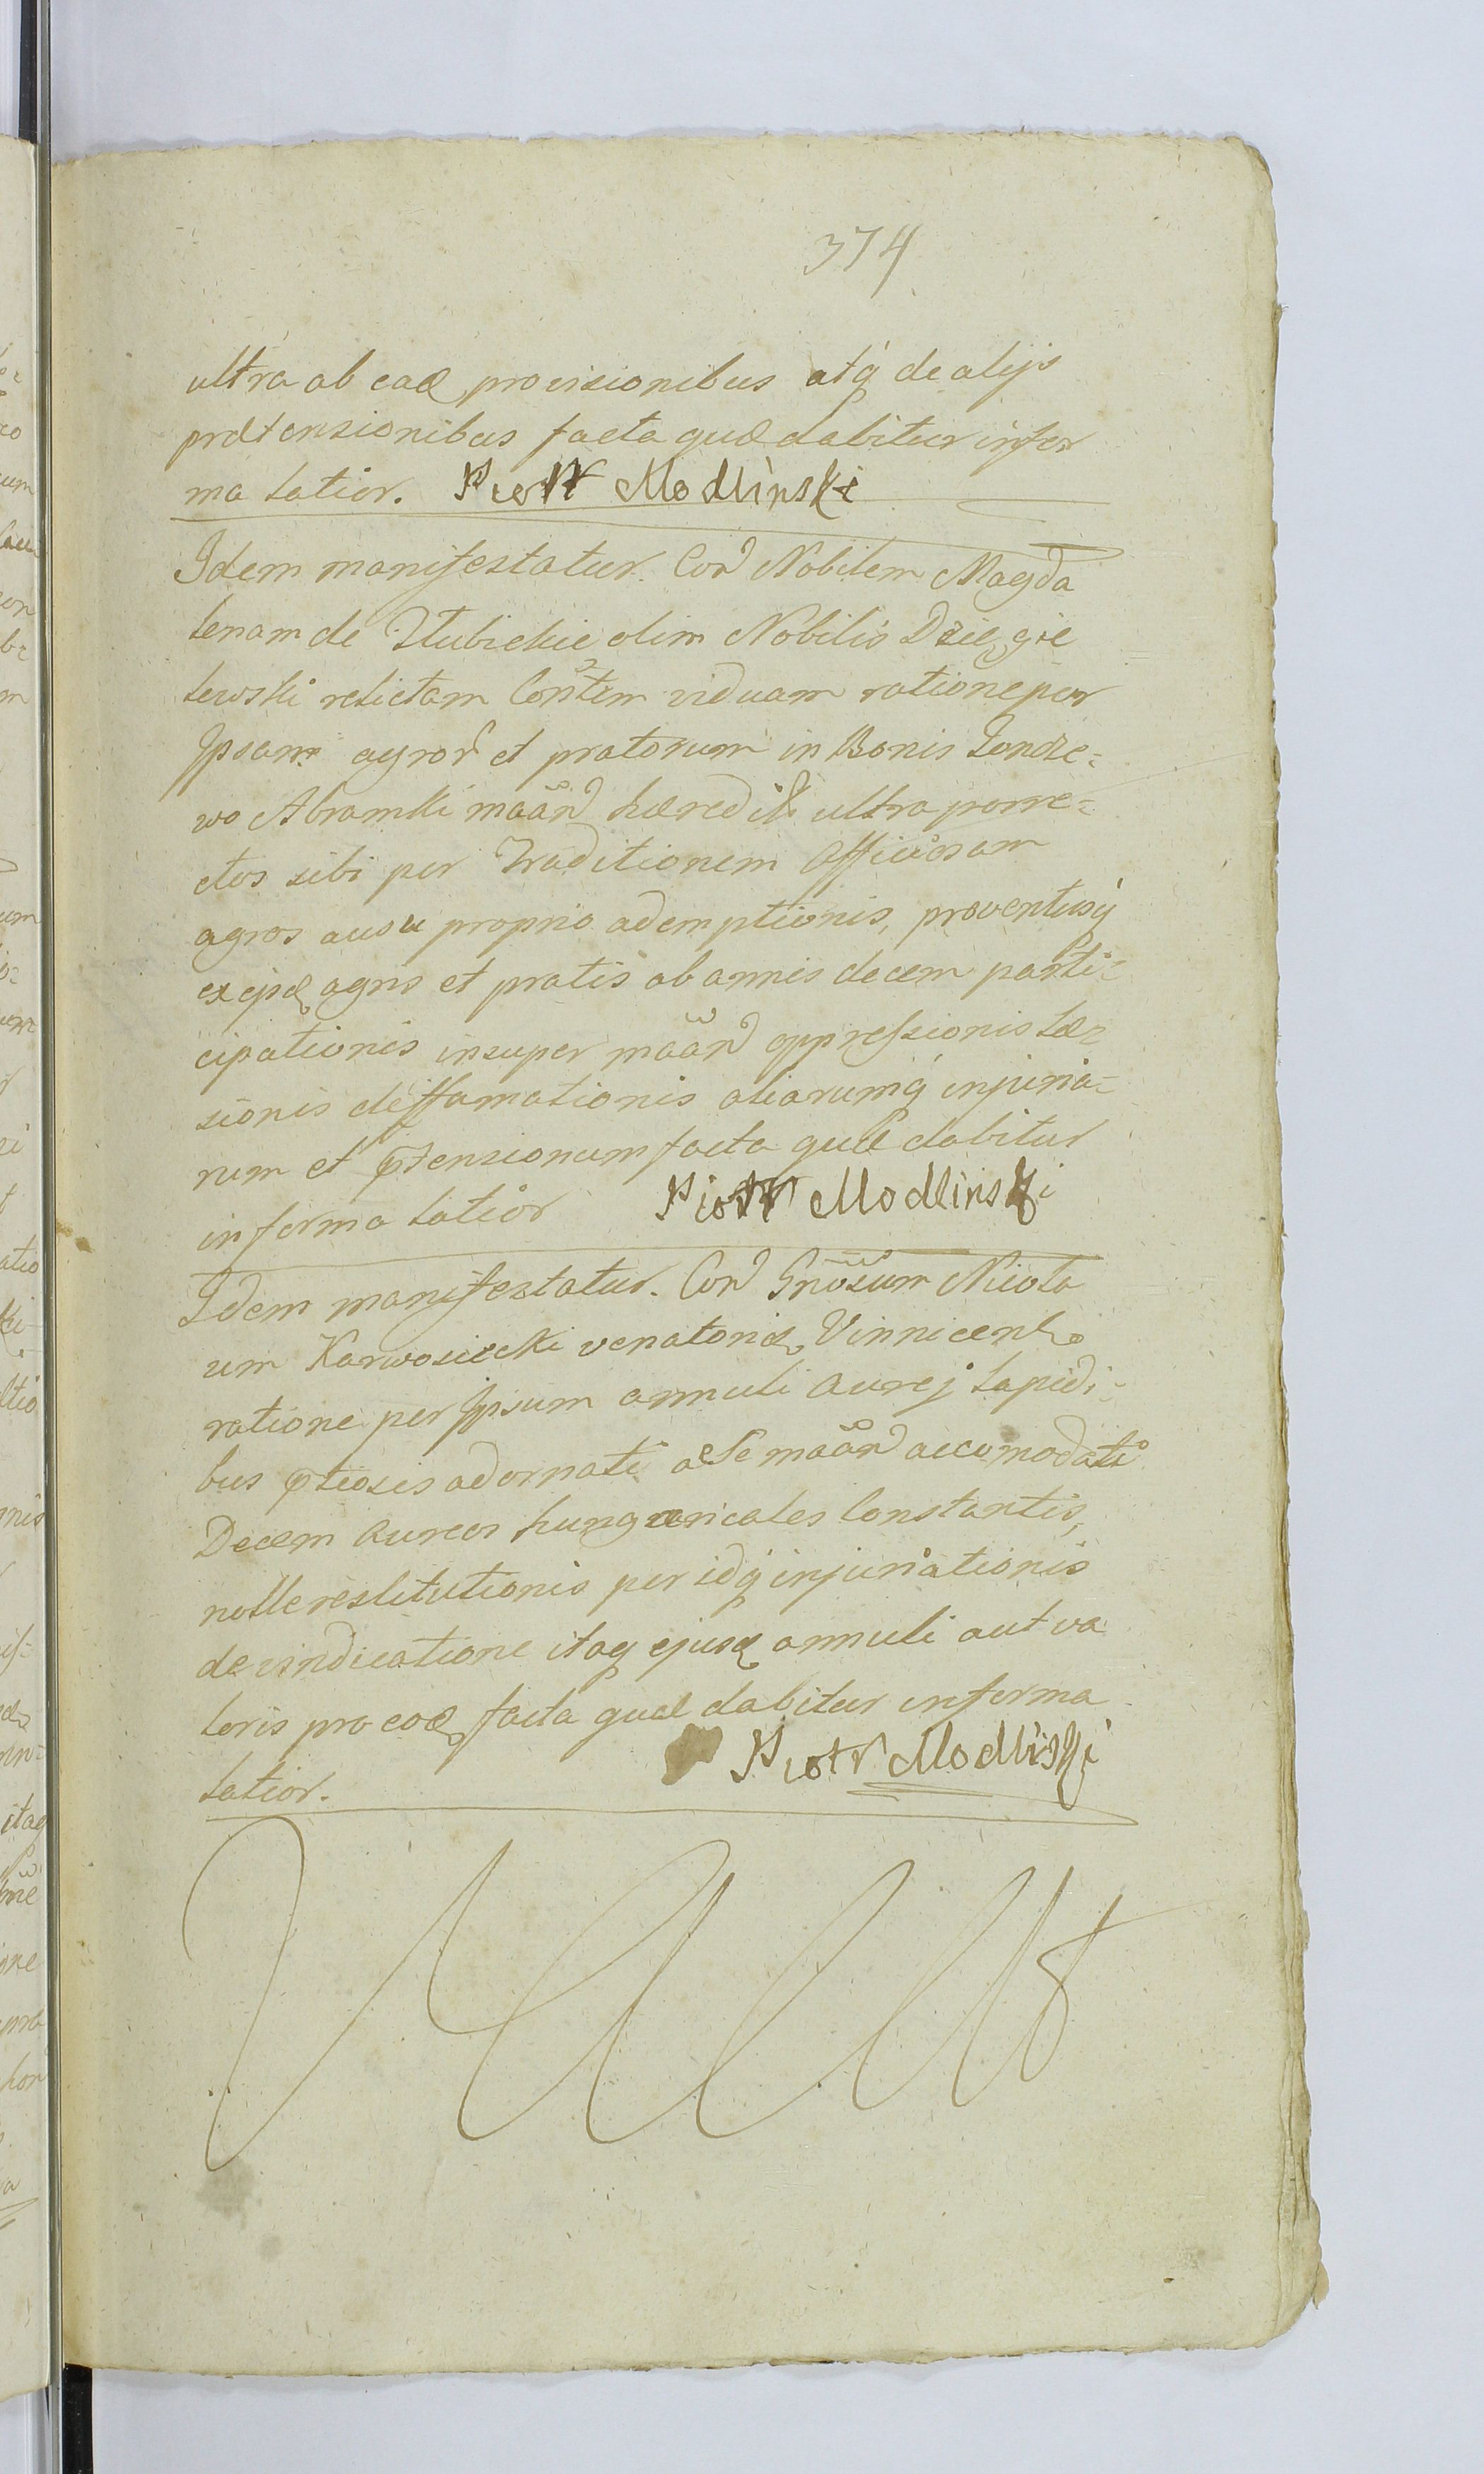 374
ultra ab ead provisionibus atq́ de alijs
prætensionibus facta quæ dabitur infor
ma latior. Piotr Modlinski
Idem manifestatur. Cor̃ Nobilem Magda
lenam de Hubickie olim Nobilis Dzięgie
lewski relictam Cons̃tem viduam ratione per
Ipsam agror̃ et pratorum in Bonis Jendrze=
wo Abramki mããñ hæredit: ultra porre=
ctos sibi per Traditionem Officiosam
agros ausu proprio ademptionis, proventusq́
ex ijsd agris et pratis ab annis decem parti=
cipationis insuper mããñ oppressionis læ=
sionis diffamationis aliarumq́ injuria=
rum et p̃tensionum facta quæ dabitur
in forma latior Piotr Modlinski
Idem manifestatur. Cor̃ Gñõsum Nicola
um Karwosiecki venatorid Vinnicens
ratione per Ipsum annuli aurej lapidi=
bus p̃tiosis adornati a Se mããñ accomodati
Decem aureos hungaricales Constantis,
nolle restitutionis per idq́ injuriationis
de vindicatione itaq ejusd annuli aut va
loris pro eod facta quæ dabitur in forma
latior. Piotr Modliski